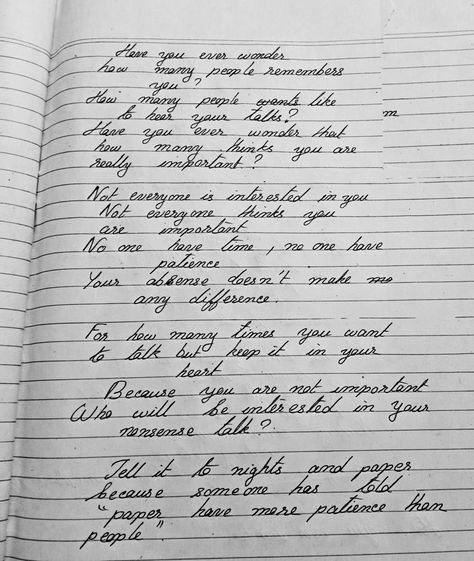 Have you ever wonder
how many people remembers
you?
How many people wants like
to hear your talks?
Have you ever wonder that
how many thinks you are
really important?
Not everyone is interested in you
Not everyone thinks you
are important
No one have time, no one have
patience
Your absense doesn't make
any difference.
For how many times you want
to talk but keep it in your
heart
Because you are not important
Who will be interested in your
nonsense talk?
Tell it to nights and paper
because someone has told
"paper have more patience than
people".